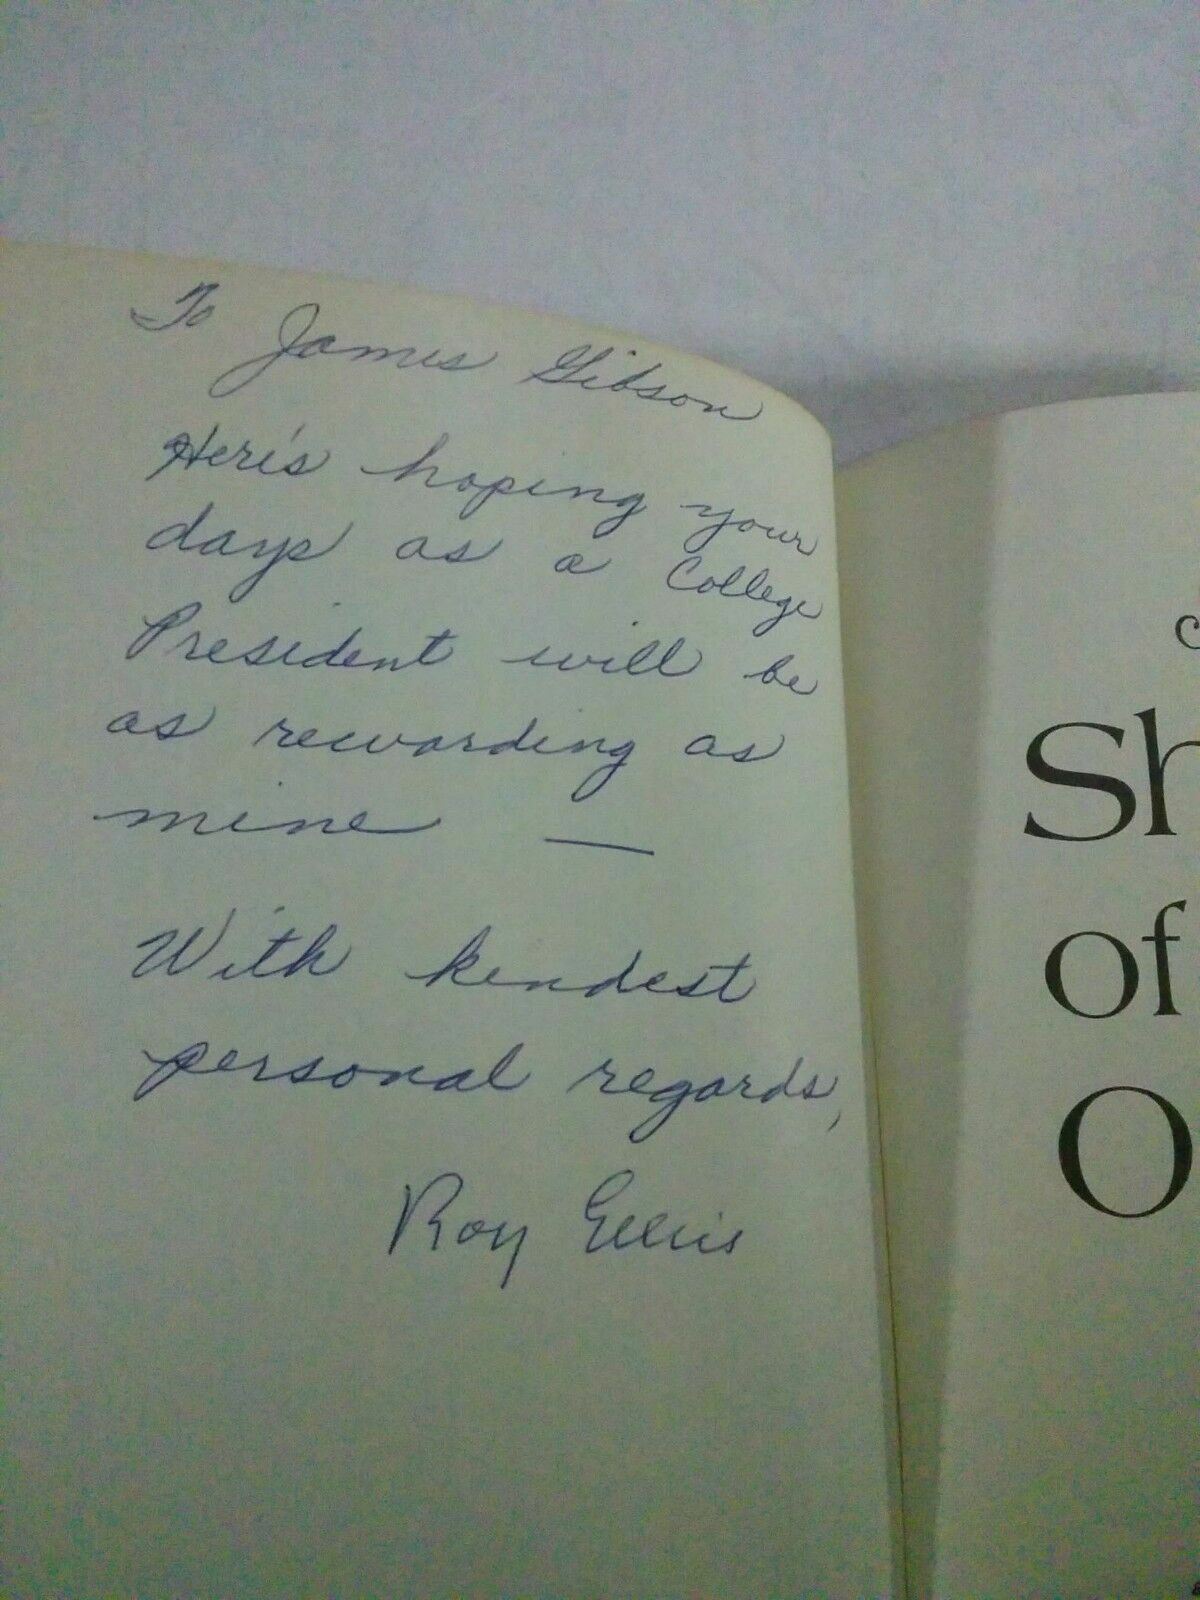 To James Gibson
Here's hoping your
days as a College
President will be
as rewarding as
mine —
With kindest
personal regards,
Roy Ellis
Sh
of
O